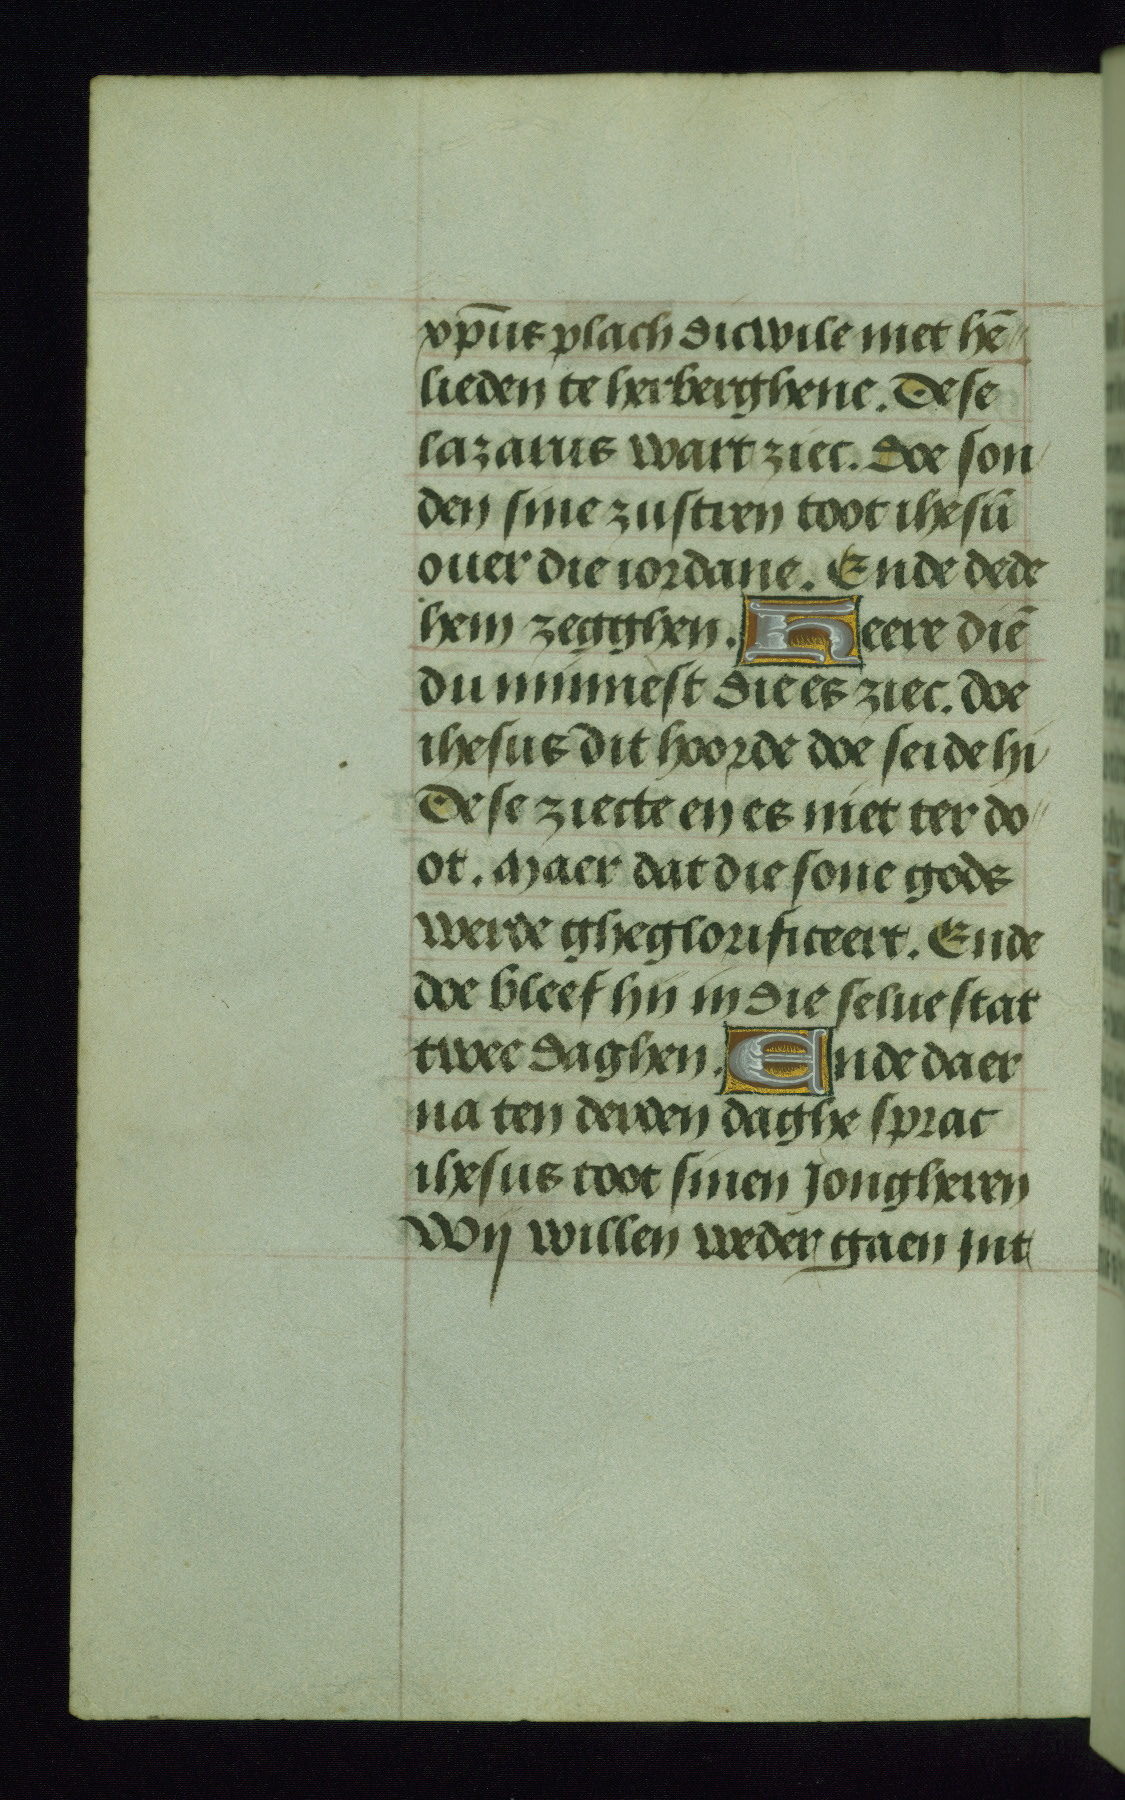 xp̄us plach dicwile met hē
lieden te herberghene. Dese
lazarus wart ziec. Doe son
den sine zustren toot ihesū
ouer die iordane. Ende dede
hem zegghen. Heere diē
du minnest die es ziec. doe
ihesus dit hoorde doe seide hi
Dese ziecte en es niet ter do
ot. Maer dat die sone gods
werde gheglorificeert. Ende
doe bleef hij in die selue stat
twee daghen. Ende daer
na ten derden daghe sprac
ihesus toot sinen Jongheren
Wij willen weder gaen int